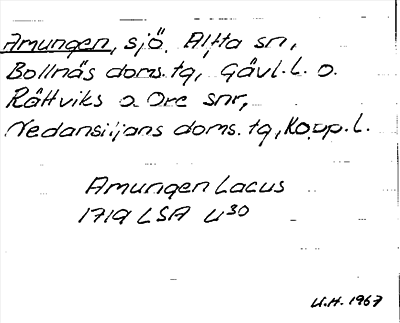 Amungen, sjö. Alfta sn,
Bollnäs doms. tg, Gävl. l. o.
Rättviks o Ore snr,
Nedansiljans doms. tg, Kopp. l.
Amungen Lacus
1719 LSA U30
U.H. 1967